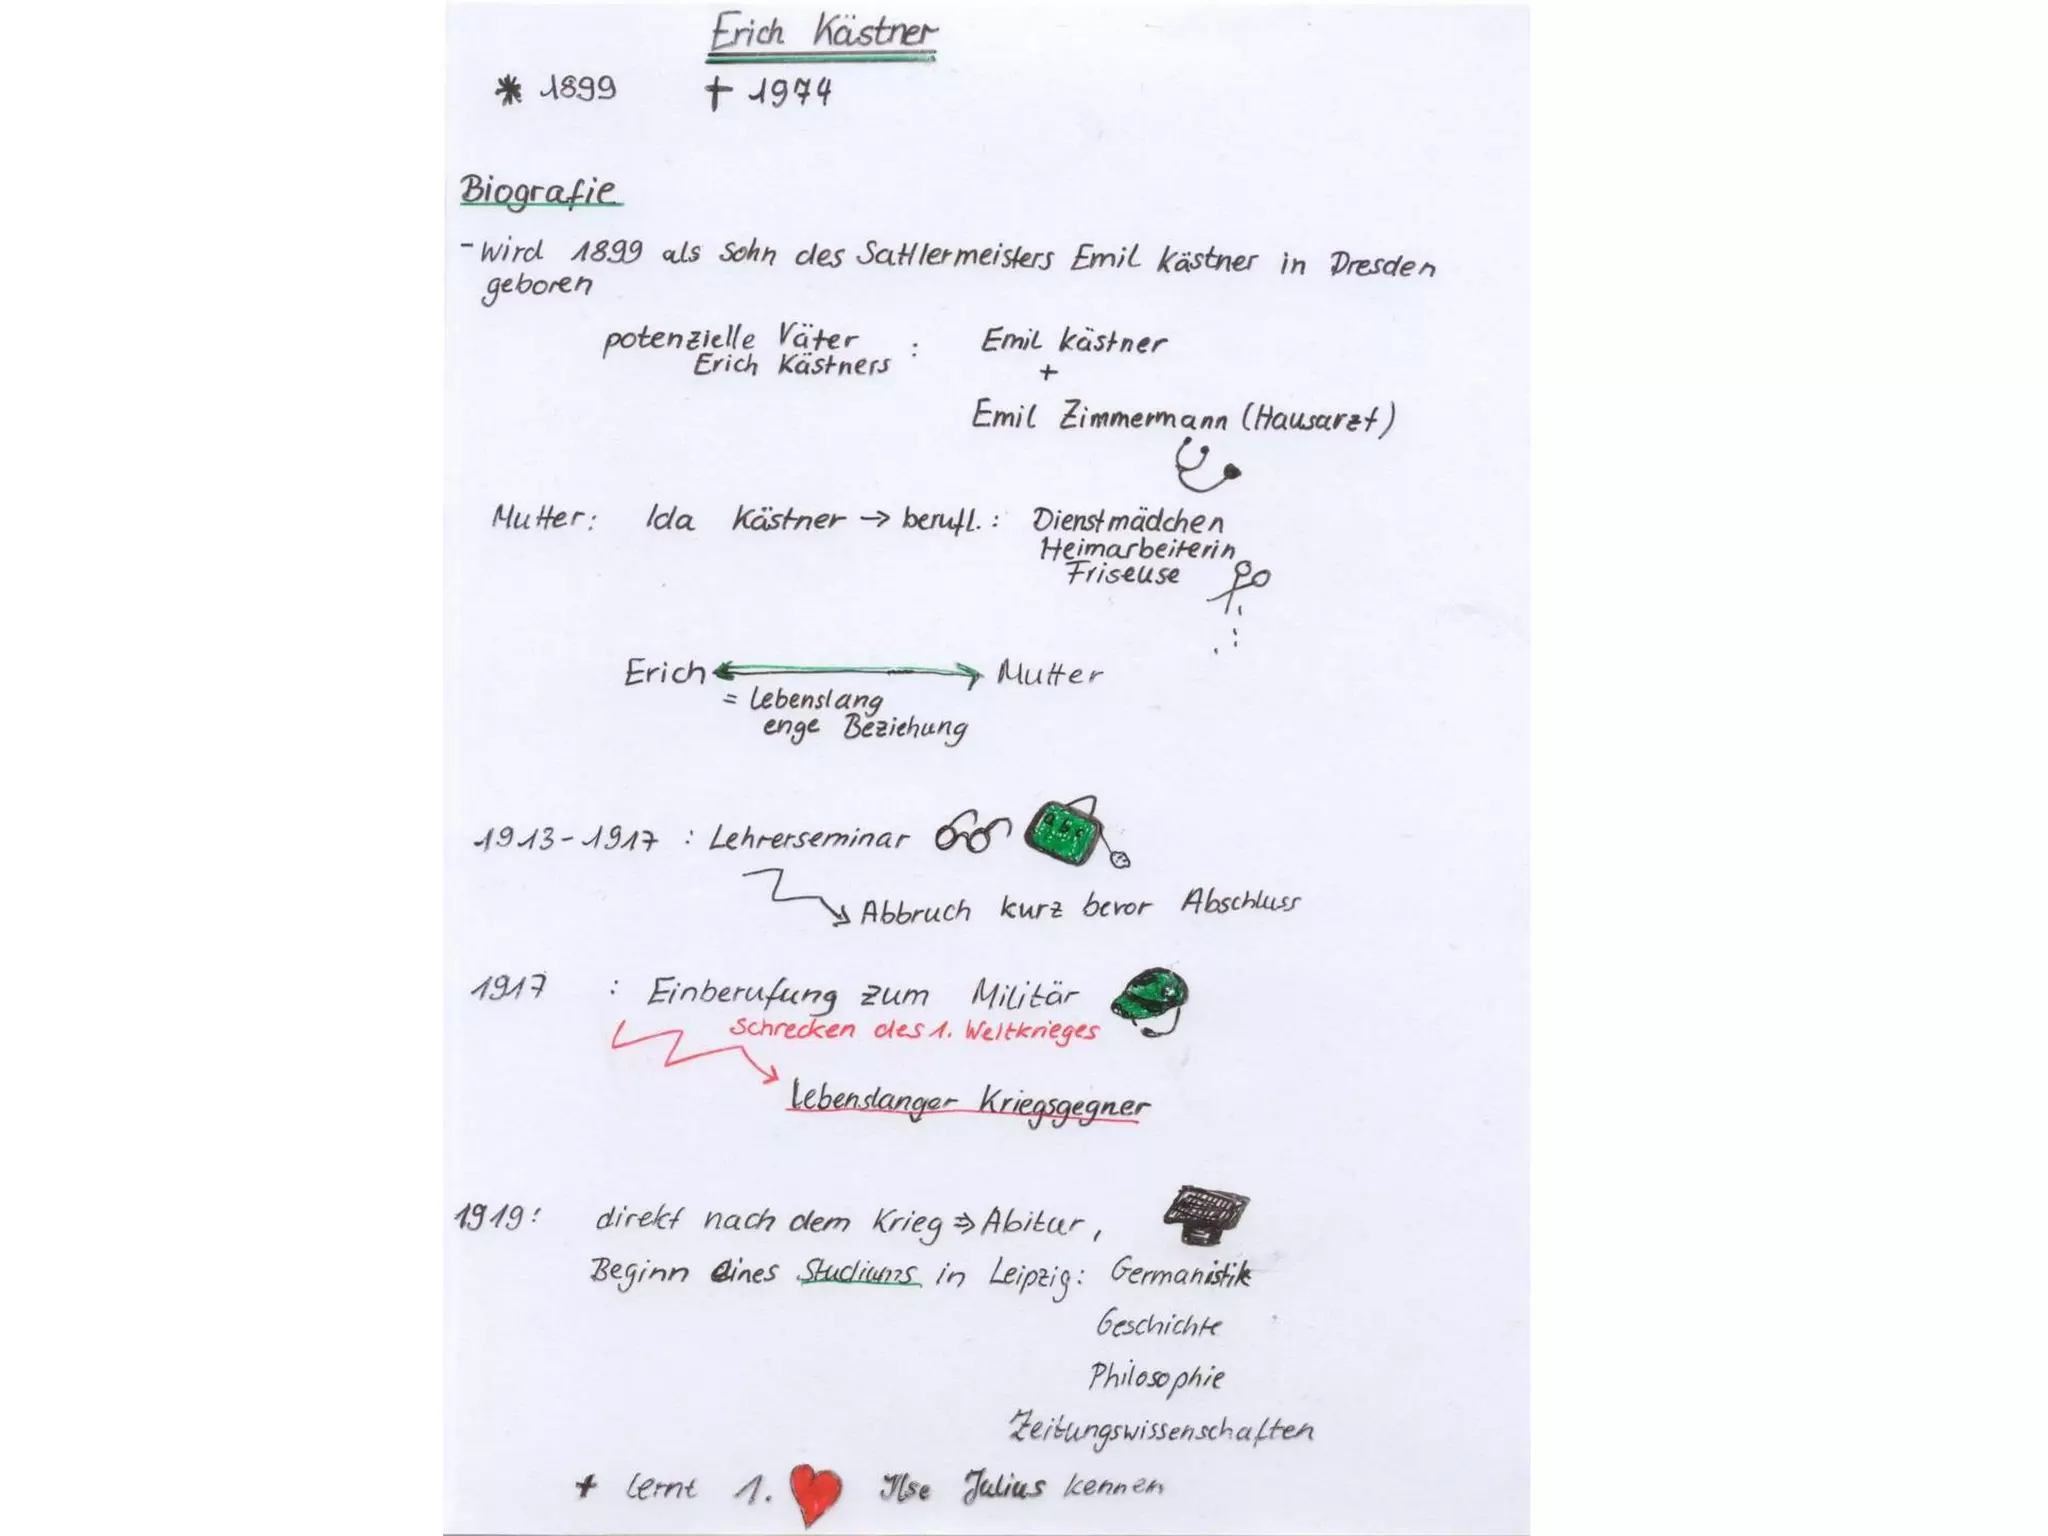 Erich Kästner
* 1899 † 1974
Biografie
- wird 1899 als Sohn des Sattlermeisters Emil Kästner in Dresden
geboren
potenzielle Väter : Emil Kästner
Erich Kästners
+
Emil Zimmermann (Hausarzt)
Mutter: Ida Kästner → berufl.: Dienstmädchen
Heimarbeiterin
Friseuse
Erich ↔ Mutter
= lebenslang
enge Beziehung
abc
1913-1917 : Lehrerseminar
Abbruch kurz bevor Abschluss
1917 : Einberufung zum Militär
Schrecken des 1. Weltkrieges
Lebenslanger Kriegsgegner
1919: direkt nach dem Krieg ⇒ Abitur,
Beginn eines Studiums in Leipzig: Germanistik
Geschichte
Philosophie
Zeitungswissenschaften
+ lernt 1. ♥ Ilse Julius kennen